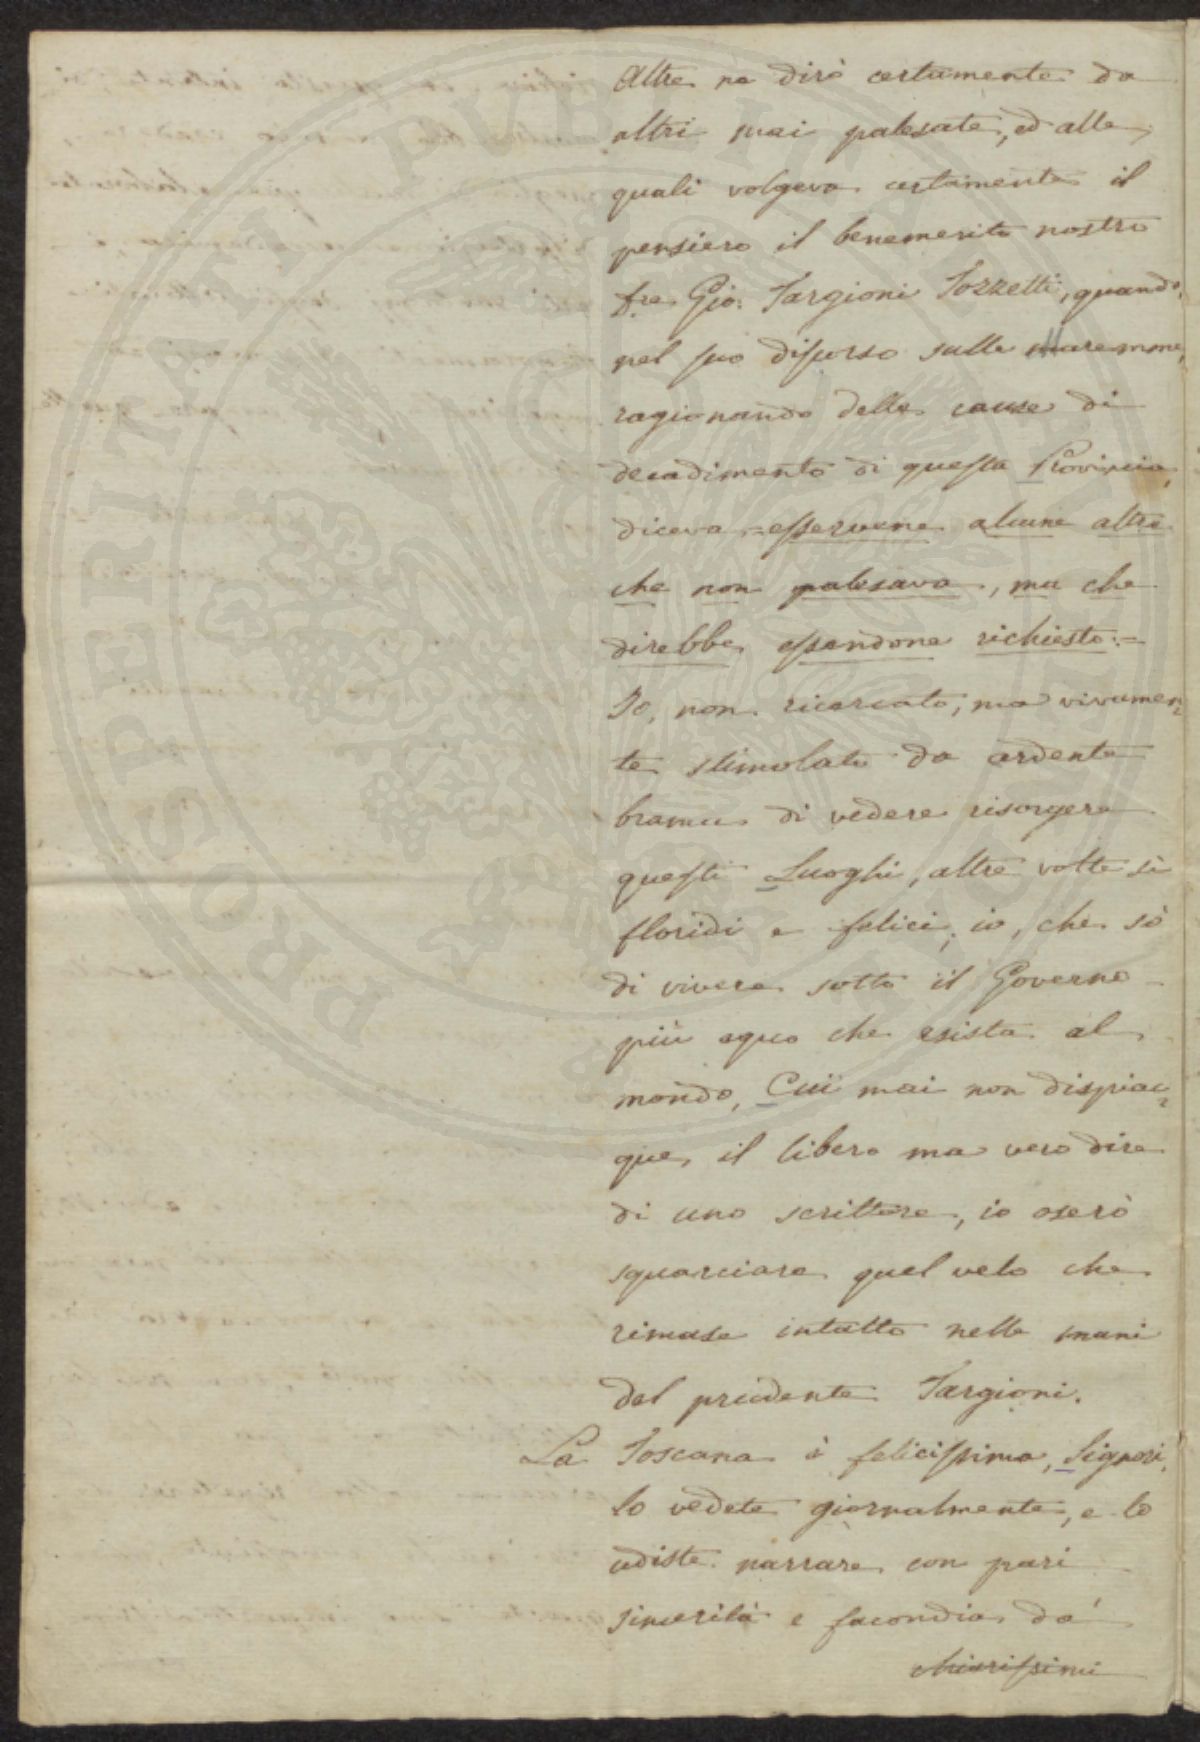 Altre ne dirò certamente da
altri mai palesate, ed alle
quali volgeva certamente il
pensiero il benemerito nostro
Gio: Targioni Tozzetti, quando,
nel suo discorso sulle maremme,
ragionando delle cause di
decadimento di questa Provincia,
diceva = esservene alcune altre
che non palesava, ma che
direbbe essendone richiesto: =
Io, non ricercato, ma vivamen=
te stimolato da ardente
brama di vedere risorgere
questi Luoghi, altre volte sì
floridi e felici; io, che sò
di vivere sotto il Governo
più equo che esista al
mondo, Cui mai non dispiac=
que, il libero ma vero dire
di uno scrittore, io oserò
squarciare quel velo che
rimase intatto nelle mani
del prudente Targioni.
La Toscana è felicissima, Signori,
lo vedete giornalmente, e lo
udiste narrare con pari
sincerità e facondia da'
chiarissimi
PROSPERITATI PUBLICAE AUGENDAE